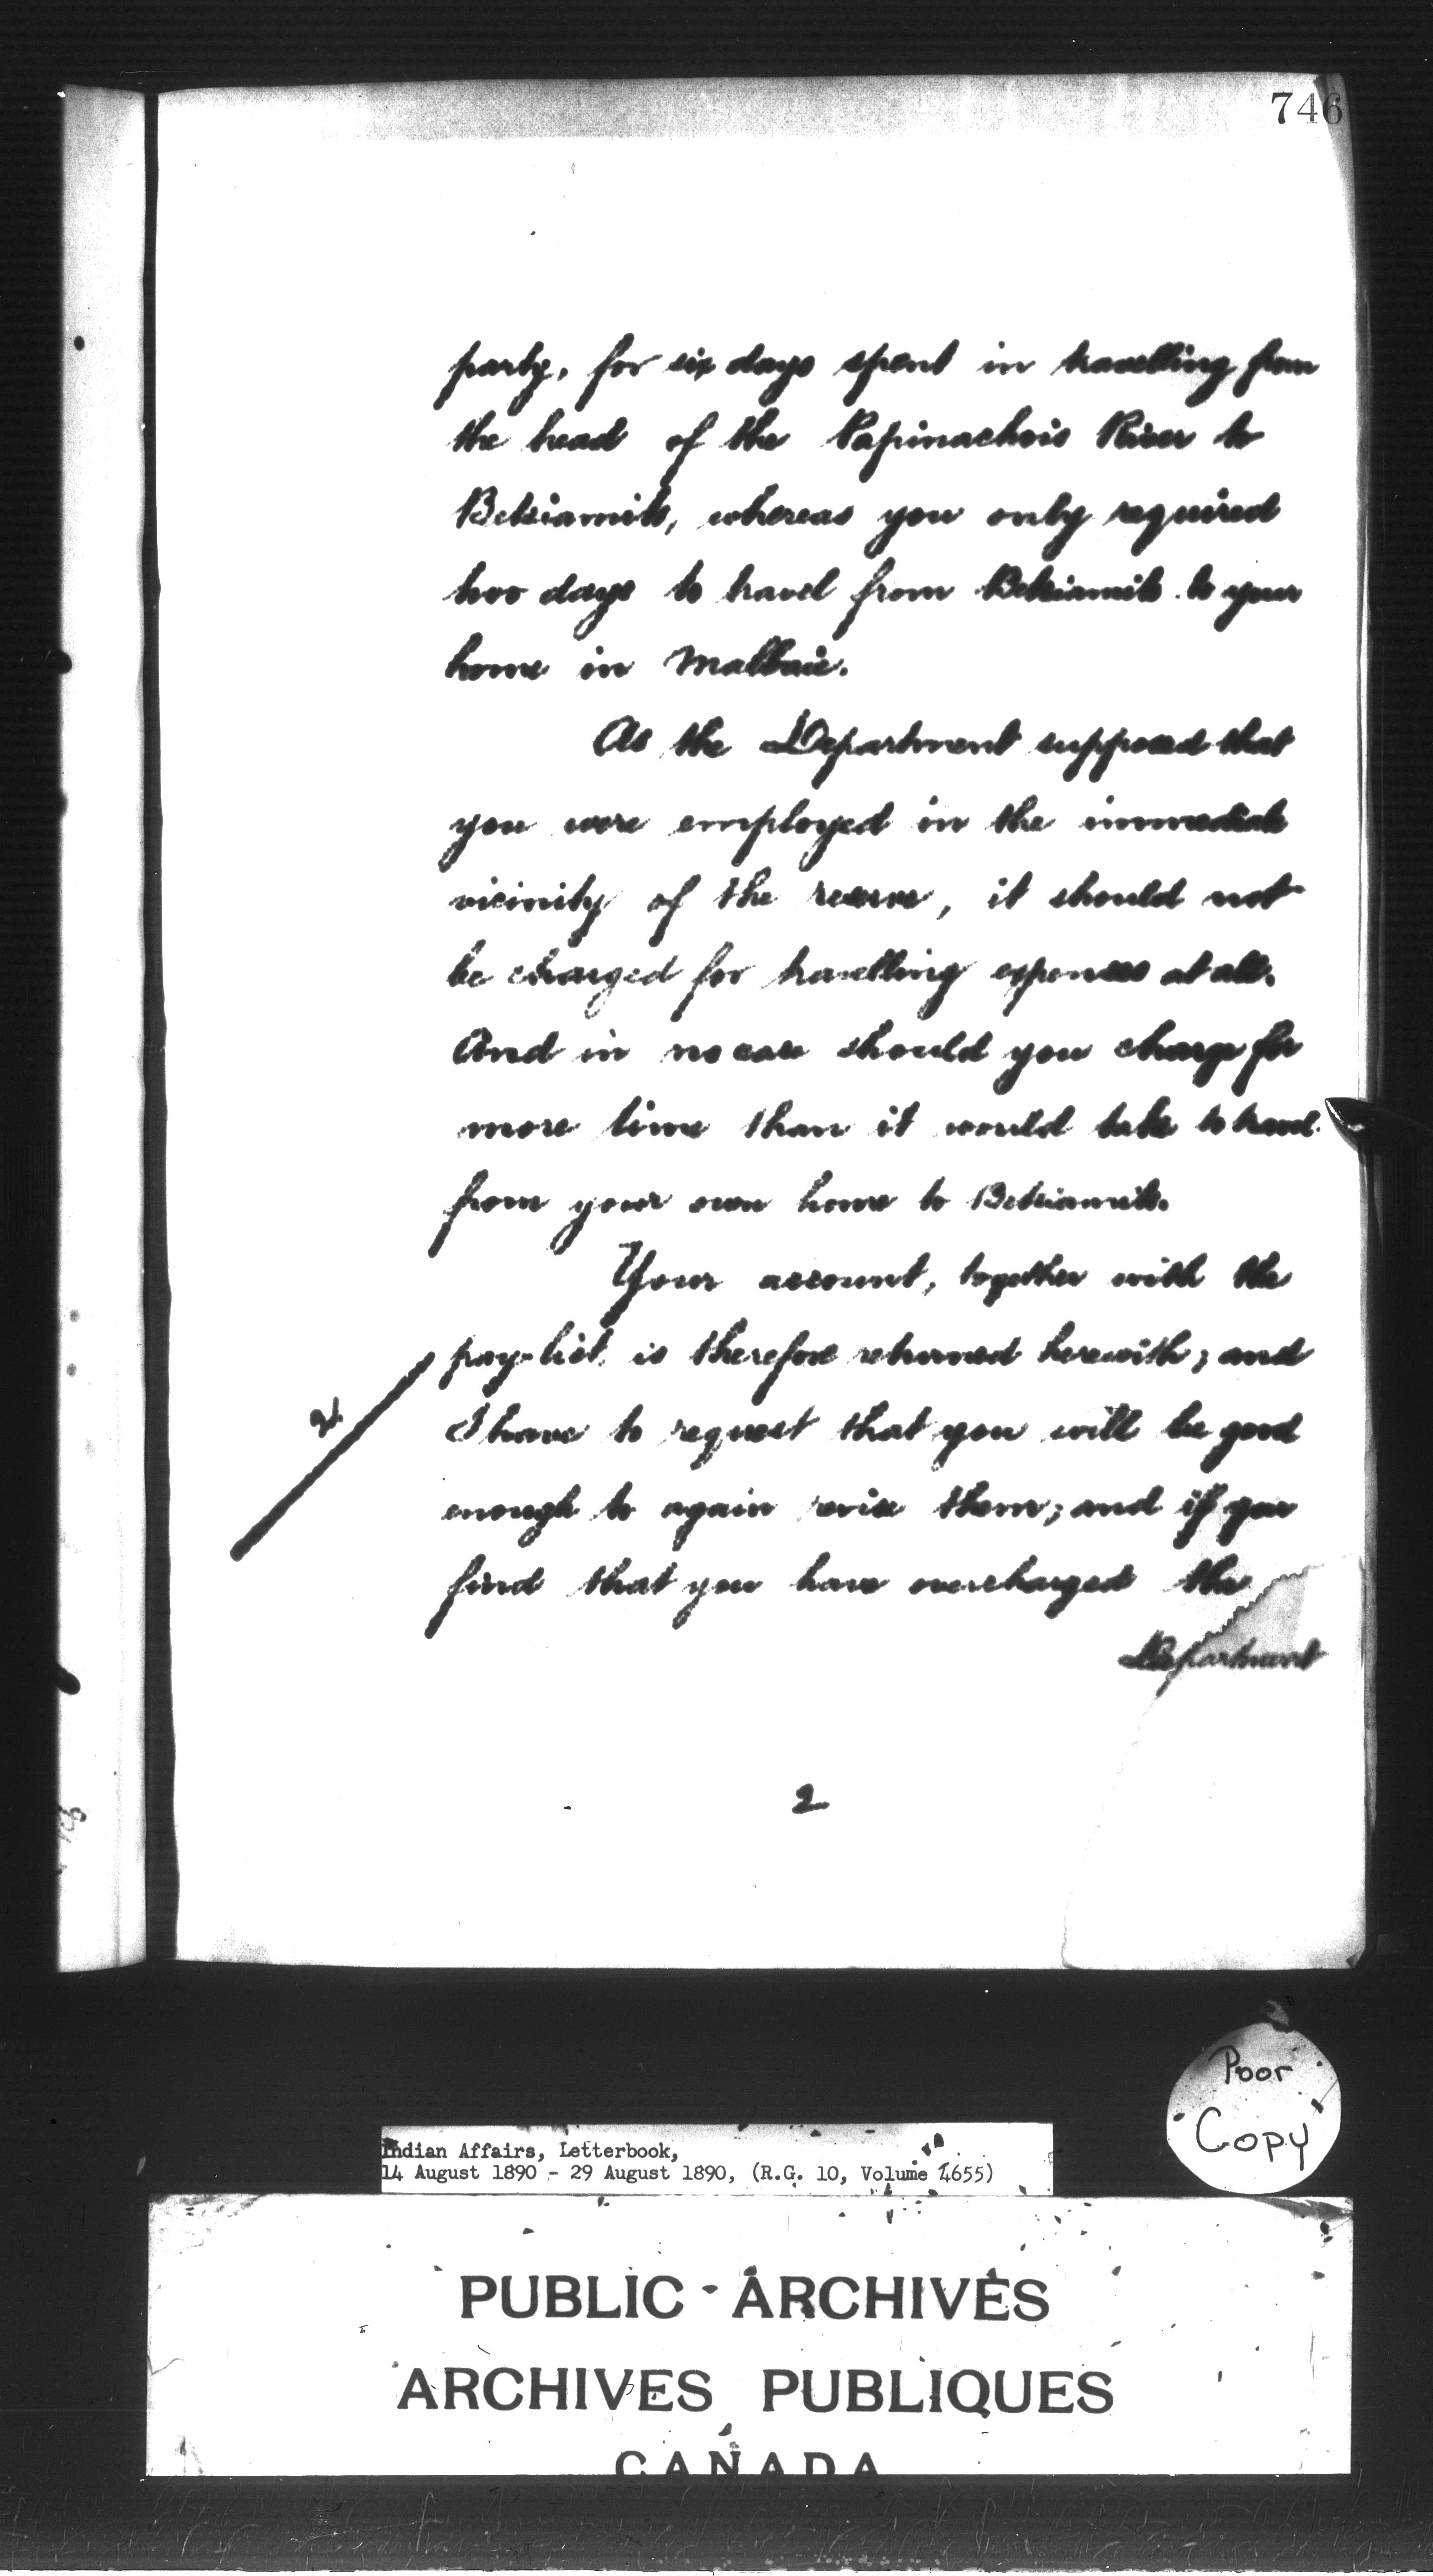 746
party, for six days spent in travelling from
the head of the Papinachois River to
Betsiamits, whereas you only required
two days to travel from Betsiamits to your
home in Malbaie.
As the Department supposed that
you were employed in the immediate
vicinity of the reserve, it should not
be charged for travelling expenses at all.
And in no case should you charge for
more time than it would take to travel
from your own home to Betsiamits.
Your account, together with the
pay-list, is therefore returned herewith; and
2
I have to request that you will be good
enough to again revise them; and if you
find that you have overcharged the
Department
2
Poor
Copy
Indian Affairs, Letterbook,
14 August 1890 - 29 August 1890, (R.G. 10, Volume 4655)
PUBLIC ARCHIVES
ARCHIVES PUBLIQUES
CANADA